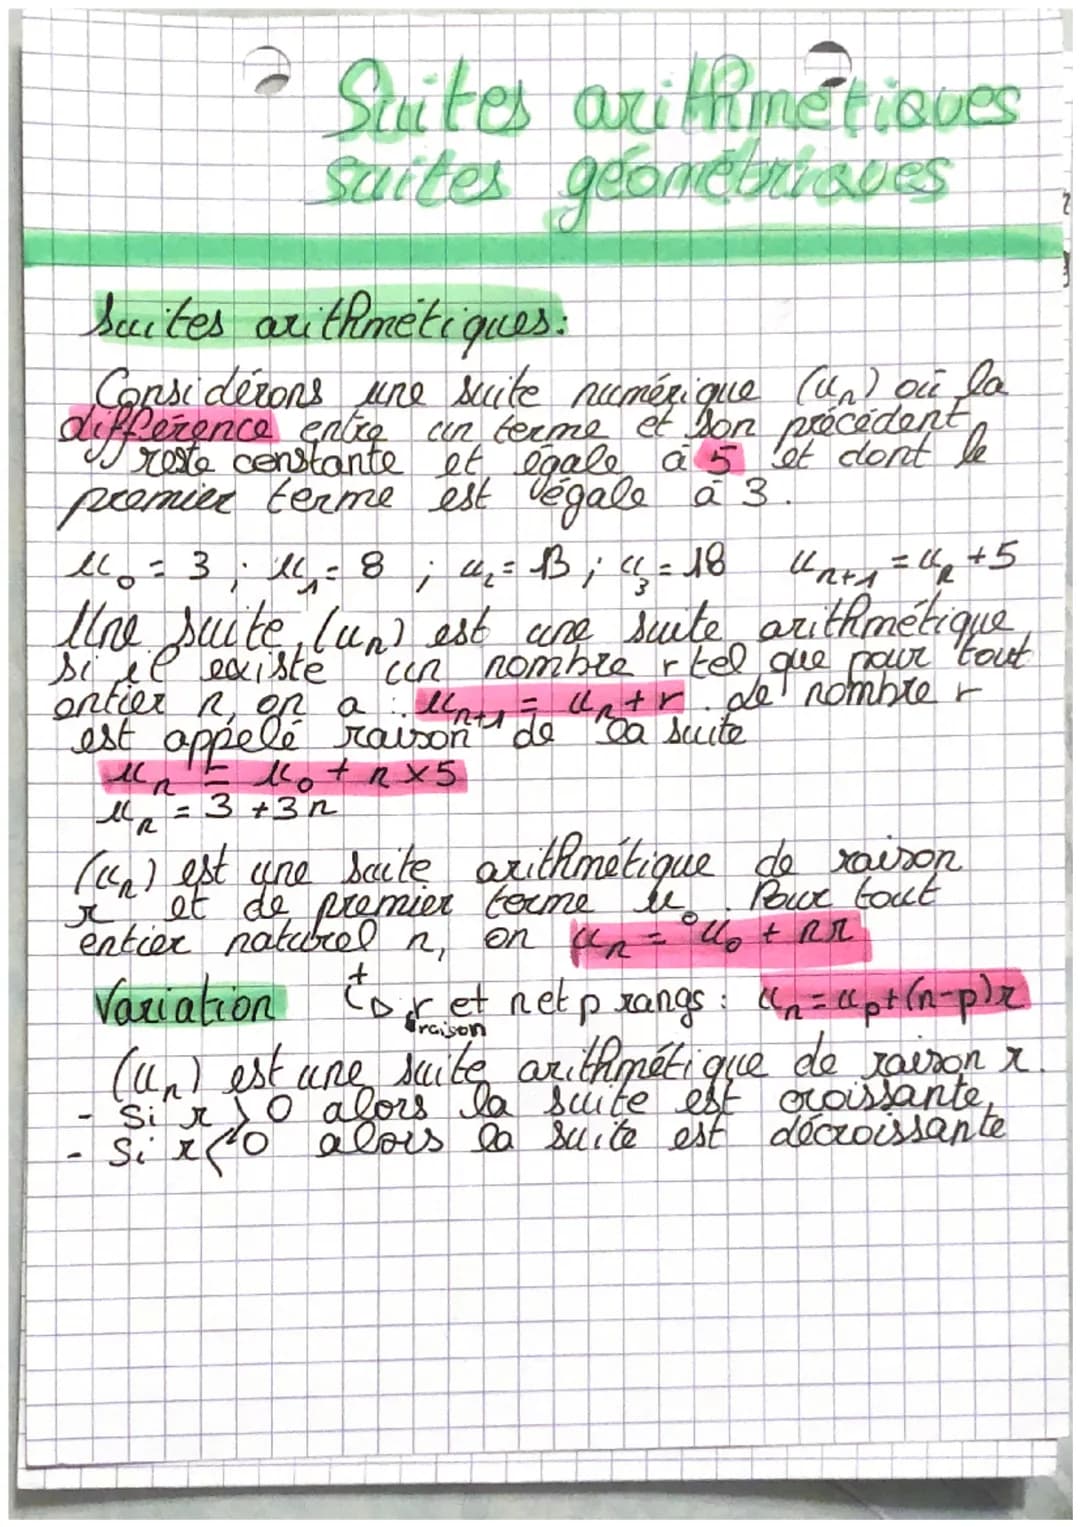 Suites arithmétiques
suites géométriques
Suites arithmétiques:
Considérons une suite numérique (uₙ) où la
différence entre un terme et son précédent
reste constante et égale à 5 et dont le
premier terme est égale à 3.
u₀ = 3 ; u₁ = 8 ; u₂ = 13 ; u₃ = 18 uₙ₊₁ = uₙ + 5
Une suite (uₙ) est une suite arithmétique
si il existe un nombre r tel que pour tout
entier n, on a : uₙ₊₁ = uₙ + r. de nombre r
est appelé raison de la suite
uₙ = u₀ + n × 5
uₙ = 3 + 3n
(uₙ) est une suite arithmétique de raison
r et de premier terme u₀. Pour tout
entier naturel n, on uₙ = u₀ + nr
Variation + r et n et p rangs : uₙ = uₚ + (n-p)r
raison
(uₙ) est une suite arithmétique de raison r.
- Si r > 0 alors la suite est croissante,
- Si r < 0 alors la suite est décroissante